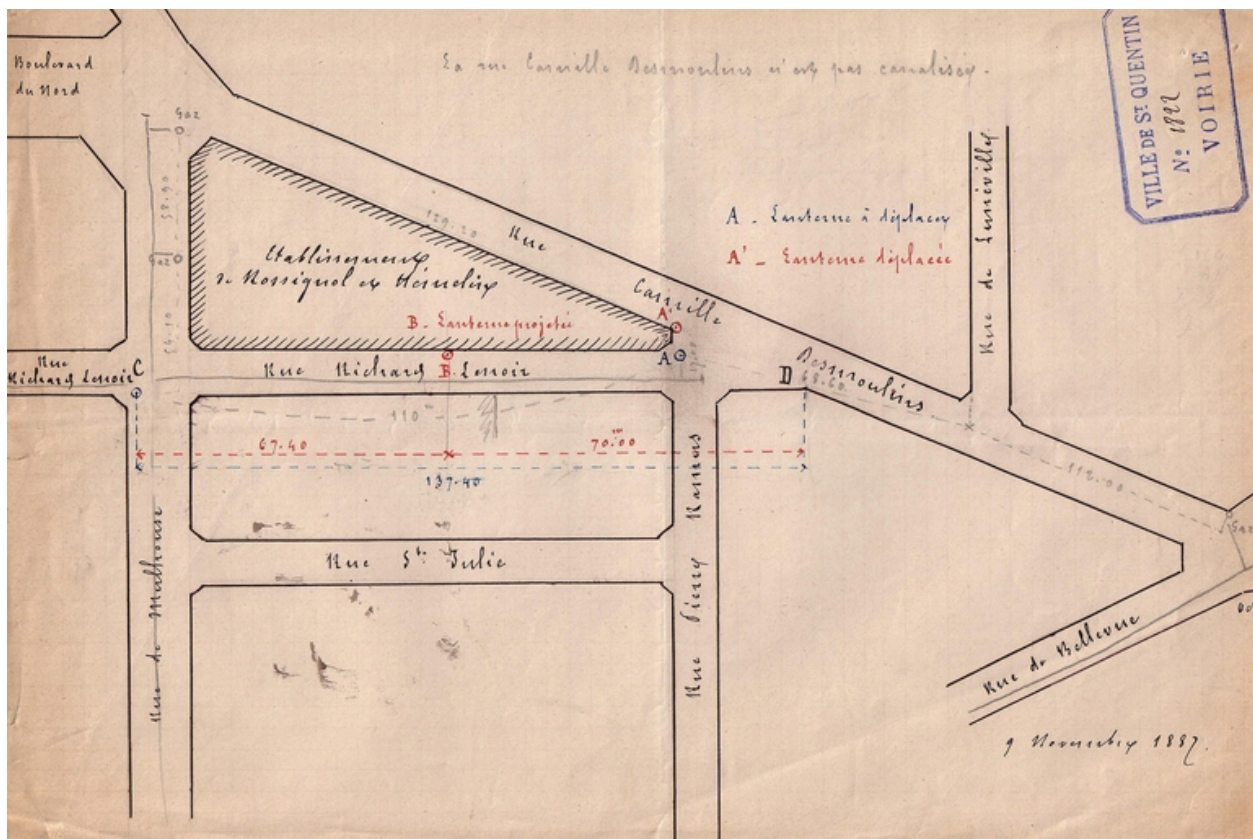 Boulevard
du Nord
La rue Camille Desmoulins n'est pas canalisée.
VILLE DE ST QUENTIN
N° 1822
VOIRIE
Gaz
58.90
Gaz
54.10
129.20
Rue
Camille
Desmoulins
Etablissement
de Rossignol et
B - Lanterne projetée
A - Lanterne à déplacer
A' - Lanterne déplacée
Rue de Lunéville
A'
A
Rue
Richard Lenoir
C
Rue Richard Lenoir
B
D
68.60
110
67.40
70.00
137.40
112.00
Gaz
Rue Ste Julie
Rue de Mulhouse
Rue Pierre Ramus
Rue de Bellevue
9 Novembre 1887.